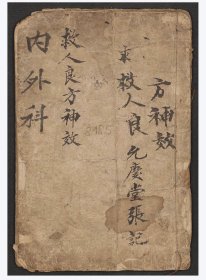 方神效
救人良
允慶堂張記
救人良方神效
內外科